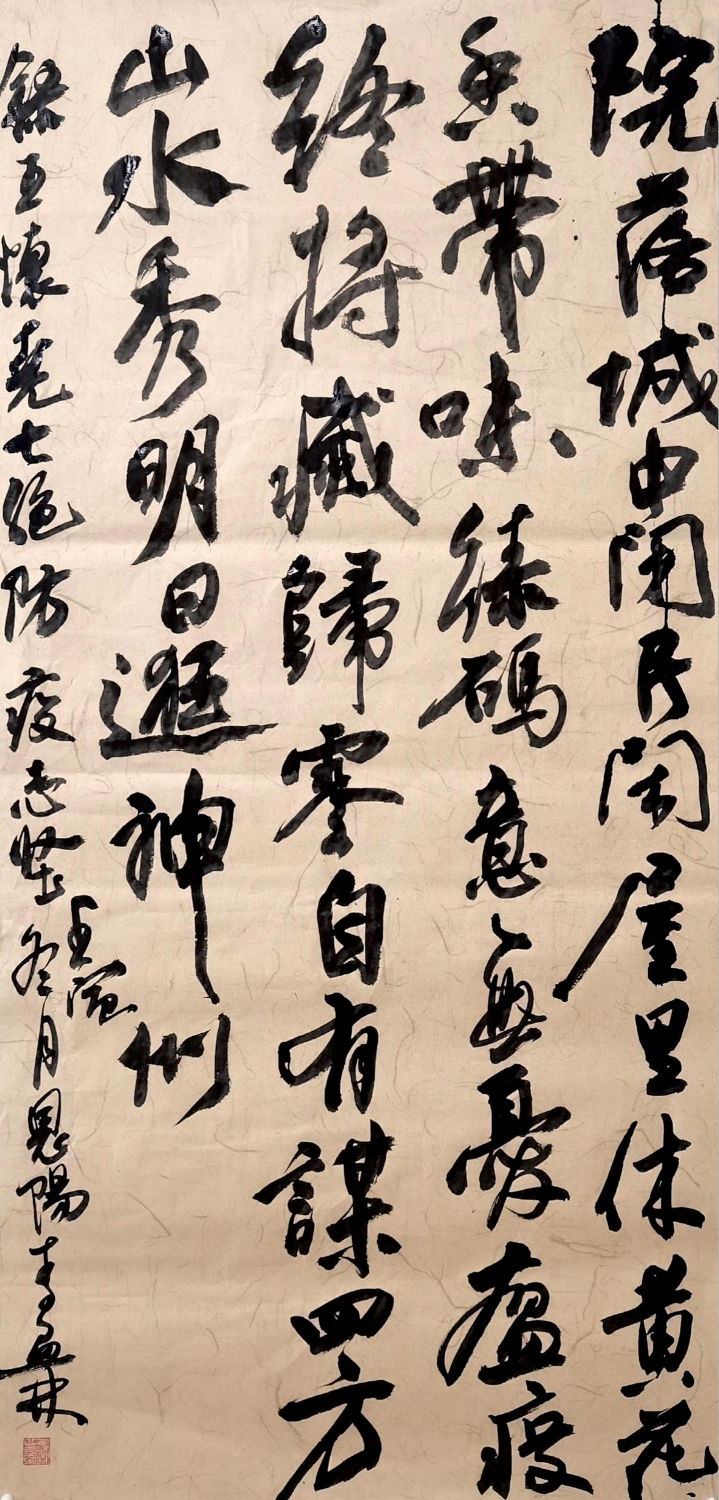 院落城中閉民閑屋里休黄花
香帶味綠碼意無憂瘟疫
終將殲歸零自有謀四方
山水秀明日逛神州
錄王懷堯七絕防疫志堅壬寅冬月恩陽李林